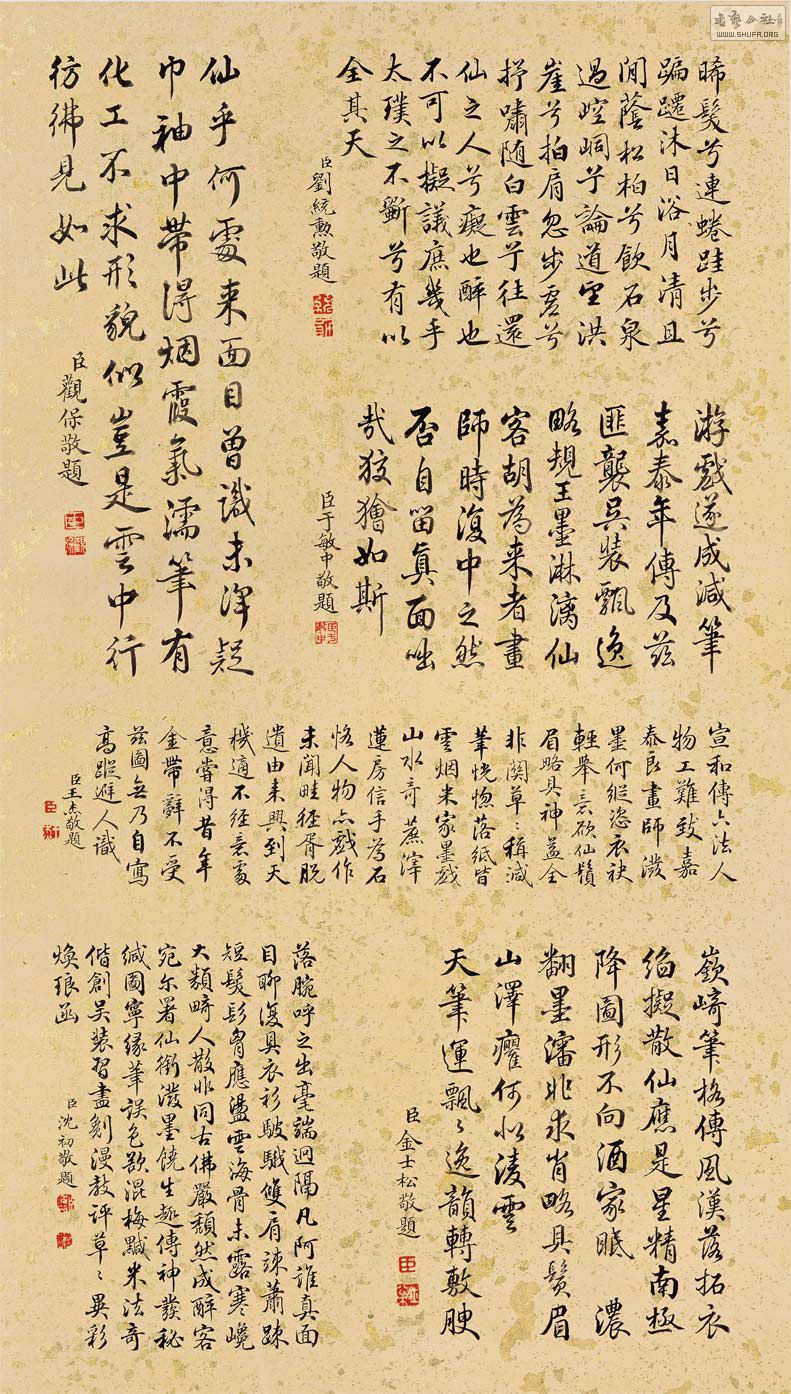 晞髮兮連蜷跬步兮
蹁躚沐日浴月清且
閒蔭松柏兮飲石泉
過崆峒兮論道望洪
崖兮拍肩忽步虛兮
抒嘯隨白雲兮往還
仙之人兮癡也醉也
不可以擬議庶幾乎
太璞之不斲兮有以
全其天
臣劉統勳敬題
仙乎何處来面目曾識未浑疑
巾袖中帶得烟霞氣濡筆有
化工不求形貌似豈是雲中行
彷彿見如此
臣觀保敬題
游戲遂成減筆
嘉泰年傳及茲
匪襲吳裝飄逸
略規王墨淋漓仙
客胡為来者畫
師時復中之然
否自留真面咄
哉狡獪如斯
臣于敏中敬題
宣和傳六法人
物工難致嘉
泰良畫師潑
墨何縱恣衣袂
輕舉意欲仙鬚
眉略具神益全
非關草草稱減
筆恍惚落紙皆
雲烟米家墨戲
山水奇蔗滓
蓮房信手為石
恪人物亦戲作
未聞畦徑胥脫
遺由来興到天
機適不經意處
意嘗得昔年
金帶辭不受
茲圖無乃自寫
高蹤避人識
臣王杰敬題
嶔崎筆格傳風漢落拓衣
絢擬散仙應是星精南極
降圖形不向酒家眠 濃
翻墨瀋非求肖略具鬚眉
山澤癯何似凌雲
天筆運飄飄逸韻轉敷腴
臣金士松敬題
落腕呼之出毫端迥隔凡阿誰真面
目聊復具衣衫駊騀雙肩竦蕭疎
短髮髟胷應盪雲海骨未露寒巉
大類畸人散非同古佛嚴頹然成醉客
宛尔署仙銜潑墨饒生趣傳神發秘
緘圖寧緣筆誤色欲混梅黬米法奇
偕創吳裝習盡剗漫教評草草異彩
煥琅函
臣沈初敬題
WWW.SHUFA.ORG